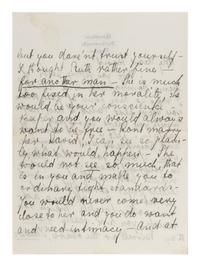 but you daren't trust yourself –
I thought Ruth rather fine –
for another man – She is much
too fixed in her morality, as
would be your conscience
keeper and you would always
want to be free – Dont marry
her David, I can see so plain-
ly what would happen – She
would not see so much, that
is in you and make you to
ordinary tight standards –
You would never come very
close to her and you do want
and need intimacy – and at